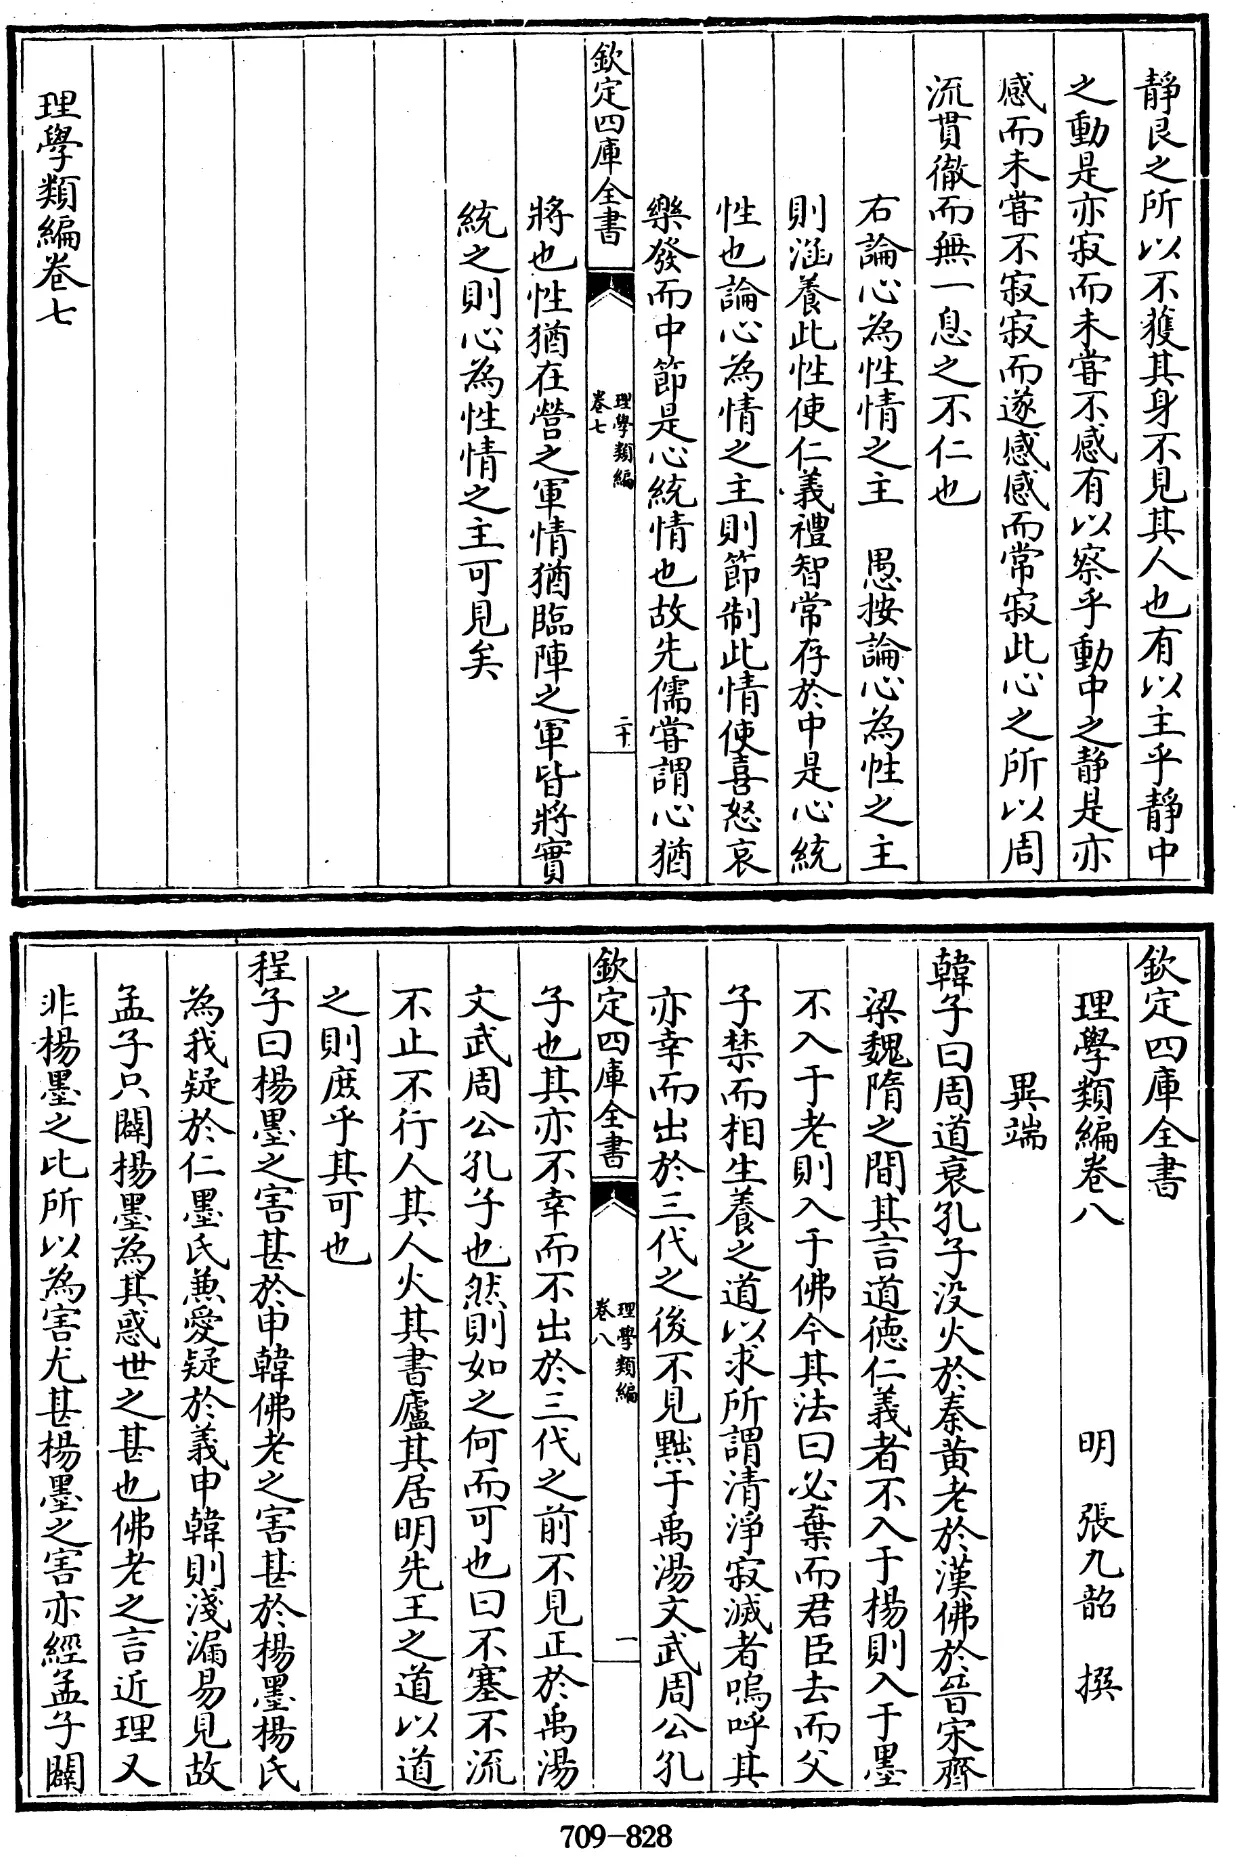 靜艮之所以不獲其身不見其人也有以主乎靜中
之動是亦寂而未甞不感有以察乎動中之靜是亦
感而未甞不寂寂而遂感感而常寂此心之所以周
流貫徹而無一息之不仁也
右論心為性情之主　愚按論心為性之主
則涵養此性使仁義禮智常存於中是心統
性也論心為情之主則節制此情使喜怒哀
樂發而中節是心統情也故先儒甞謂心猶
欽定四庫全書
理學類編
卷七
二十
將也性猶在營之軍情猶臨陣之軍皆將實
統之則心為性情之主可見矣
理學類編卷七
欽定四庫全書
理學類編卷八　明　張九韶　撰
異端
韓子曰周道衰孔子没火於秦黄老於漢佛於晉宋齊
梁魏隋之間其言道德仁義者不入于楊則入于墨
不入于老則入于佛今其法曰必棄而君臣去而父
子禁而相生養之道以求所謂清淨寂滅者嗚呼其
亦幸而出於三代之後不見黜于禹湯文武周公孔
欽定四庫全書
理學類編
卷八
一
子也其亦不幸而不出於三代之前不見正於禹湯
文武周公孔子也然則如之何而可也曰不塞不流
不止不行人其人火其書廬其居明先王之道以道
之則庶乎其可也
程子曰楊墨之害甚於申韓佛老之害甚於楊墨楊氏
為我疑於仁墨氏兼愛疑於義申韓則淺漏易見故
孟子只闢楊墨為其惑世之甚也佛老之言近理又
非楊墨之比所以為害尤甚楊墨之害亦經孟子闢
709-828